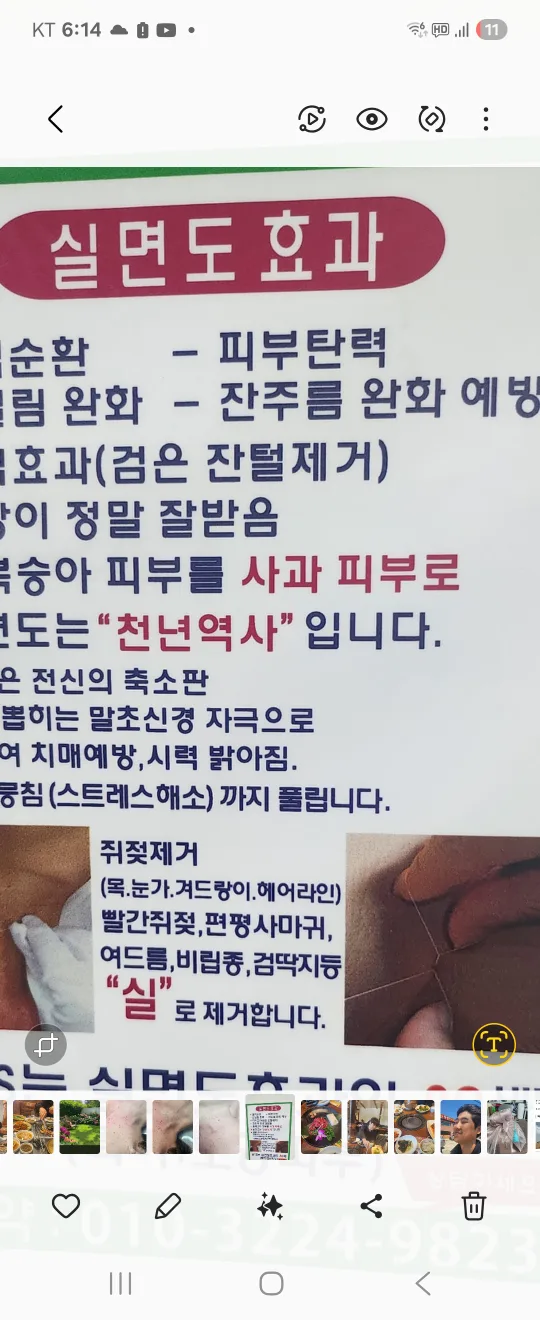 KT 6:14
HD
11
실면도효과
순환 - 피부탄력
림 완화 - 잔주름 완화 예방
효과(검은 잔털제거)
이 정말 잘받음
숭아 피부를 사과 피부로
도는 “천년역사” 입니다.
은 전신의 축소판
뽑히는 말초신경 자극으로
여 치매예방,시력 밝아짐.
뭉침(스트레스해소)까지 풀립니다.
쥐젖제거
(목.눈가.겨드랑이.헤어라인)
빨간쥐젖,편평사마귀,
여드름,비립종,검딱지등
“실”로 제거합니다.
T
010-3224-9823